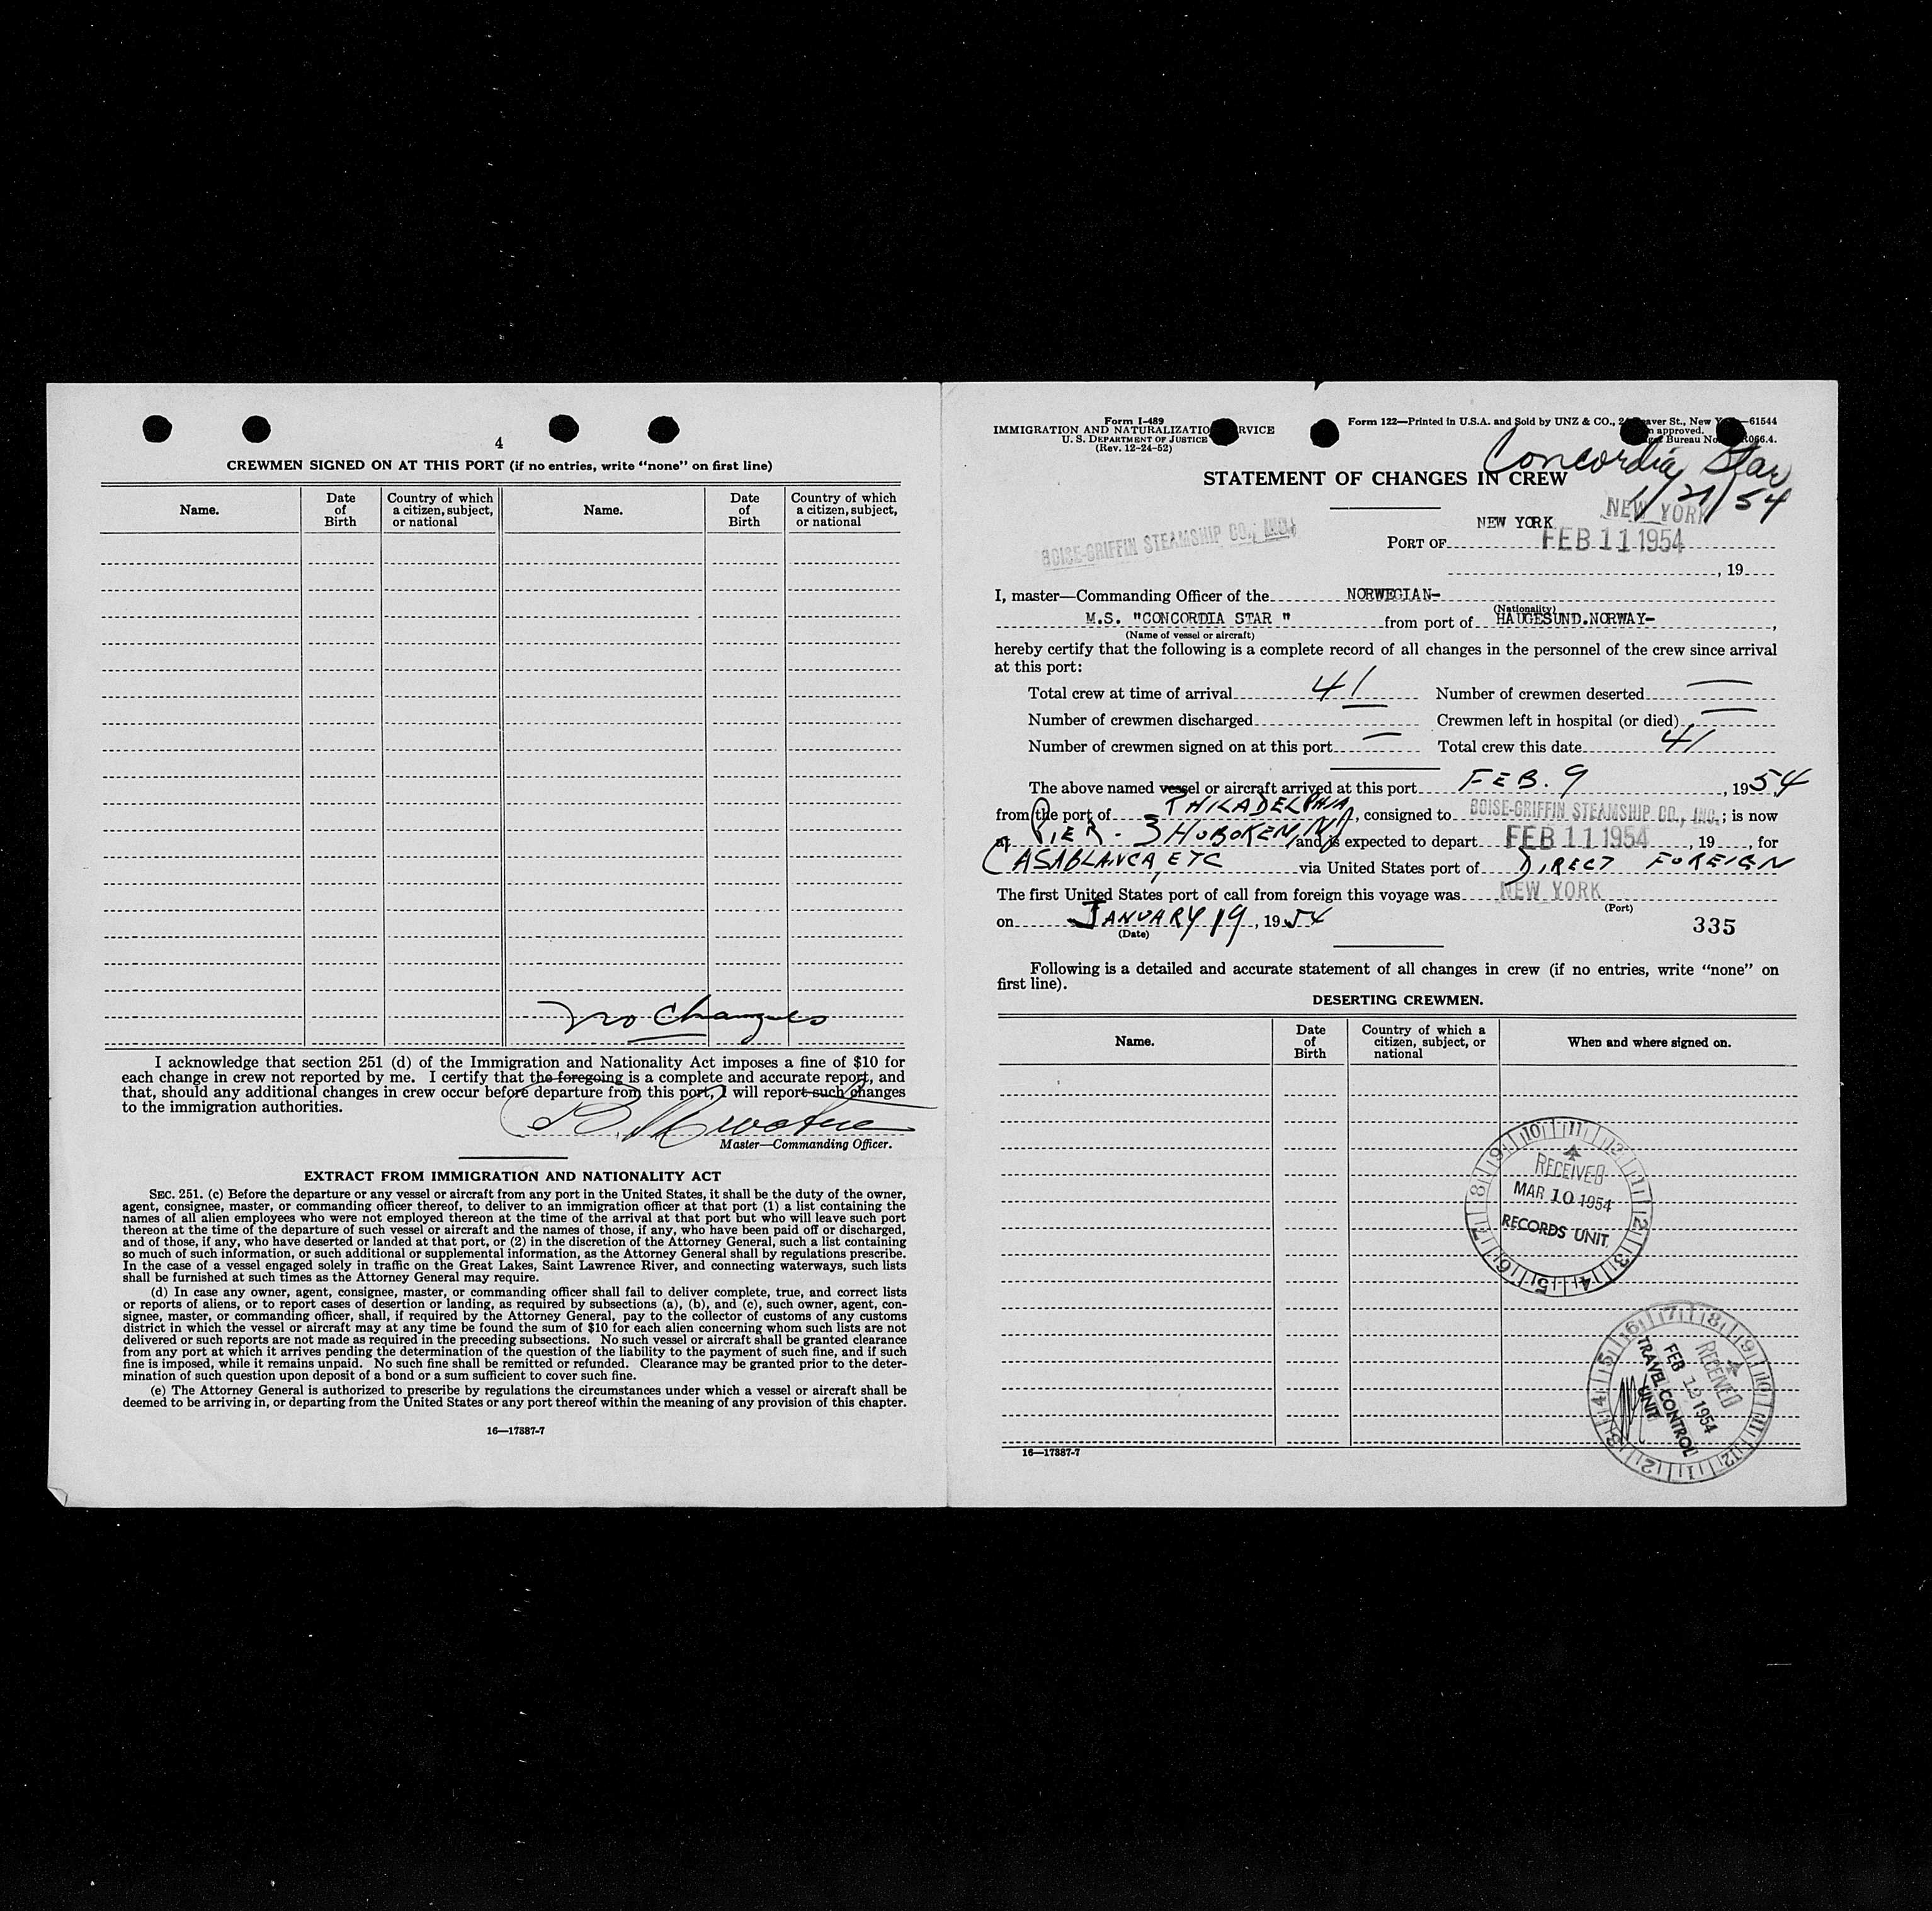 4
CREWMEN SIGNED ON AT THIS PORT (if no entries, write "none" on first line)
Name.
Date of Birth
Country of which a citizen, subject, or national
Name.
Date of Birth
Country of which a citizen, subject, or national
no changes
I acknowledge that section 251 (d) of the Immigration and Nationality Act imposes a fine of $10 for
each change in crew not reported by me. I certify that the foregoing is a complete and accurate report, and
that, should any additional changes in crew occur before departure from this port, I will report such changes
to the immigration authorities.
Master—Commanding Officer.
EXTRACT FROM IMMIGRATION AND NATIONALITY ACT
SEC. 251. (c) Before the departure or any vessel or aircraft from any port in the United States, it shall be the duty of the owner,
agent, consignee, master, or commanding officer thereof, to deliver to an immigration officer at that port (1) a list containing the
names of all alien employees who were not employed thereon at the time of the arrival at that port but who will leave such port
thereon at the time of the departure of such vessel or aircraft and the names of those, if any, who have been paid off or discharged,
and of those, if any, who have deserted or landed at that port, or (2) in the discretion of the Attorney General, such a list containing
so much of such information, or such additional or supplemental information, as the Attorney General shall by regulations prescribe.
In the case of a vessel engaged solely in traffic on the Great Lakes, Saint Lawrence River, and connecting waterways, such lists
shall be furnished at such times as the Attorney General may require.
(d) In case any owner, agent, consignee, master, or commanding officer shall fail to deliver complete, true, and correct lists
or reports of aliens, or to report cases of desertion or landing, as required by subsections (a), (b), and (c), such owner, agent, con-
signee, master, or commanding officer, shall, if required by the Attorney General, pay to the collector of customs of any customs
district in which the vessel or aircraft may at any time be found the sum of $10 for each alien concerning whom such lists are not
delivered or such reports are not made as required in the preceding subsections. No such vessel or aircraft shall be granted clearance
from any port at which it arrives pending the determination of the question of the liability to the payment of such fine, and if such
fine is imposed, while it remains unpaid. No such fine shall be remitted or refunded. Clearance may be granted prior to the deter-
mination of such question upon deposit of a bond or a sum sufficient to cover such fine.
(e) The Attorney General is authorized to prescribe by regulations the circumstances under which a vessel or aircraft shall be
deemed to be arriving in, or departing from the United States or any port thereof within the meaning of any provision of this chapter.
16—17387-7
Form I-489
IMMIGRATION AND NATURALIZATIO RVICE
U. S. DEPARTMENT OF JUSTICE
(Rev. 12-24-52)
Form 122—Printed in U.S.A. and Sold by UNZ & CO., 2 aver St., New Y —61544
approved.
Bureau No. R066.4.
Concordia Star
1/21/54
STATEMENT OF CHANGES IN CREW
NEW YORK
NEW YORK
BOISE-GRIFFIN STEAMSHIP CO., INC.
PORT OF FEB 11 1954
, 19
I, master—Commanding Officer of the NORWEGIAN-
(Nationality)
M.S. "CONCORDIA STAR " from port of HAUGESUND.NORWAY- ,
(Name of vessel or aircraft)
hereby certify that the following is a complete record of all changes in the personnel of the crew since arrival
at this port:
Total crew at time of arrival 41 Number of crewmen deserted —
Number of crewmen discharged — Crewmen left in hospital (or died) —
Number of crewmen signed on at this port — Total crew this date 41
The above named vessel or aircraft arrived at this port FEB. 9 , 1954
from the port of PHILADELPHIA, consigned to BOISE-GRIFFIN STEAMSHIP CO., INC.; is now
at PIER - 3 HOBOKEN, NJ and is expected to depart FEB 11 1954 , 19 , for
CASABLANCA, ETC via United States port of DIRECT FOREIGN
The first United States port of call from foreign this voyage was NEW YORK
(Port)
on JANUARY 19, 1954
(Date)
335
Following is a detailed and accurate statement of all changes in crew (if no entries, write "none" on
first line).
DESERTING CREWMEN.
Name.
Date of Birth
Country of which a citizen, subject, or national
When and where signed on.
RECEIVED
MAR 10 1954
RECORDS UNIT
RECEIVED
FEB 12 1954
TRAVEL CONTROL
UNIT
16—17387-7